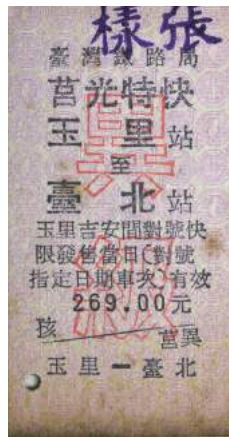 樣張
臺灣鐵路局
莒光特快
玉里站
至
臺北站
玉里吉安間對號快
限發售當日(對號
指定日期車次)有效
269.00元
孩 莒異
玉里－臺北
異級